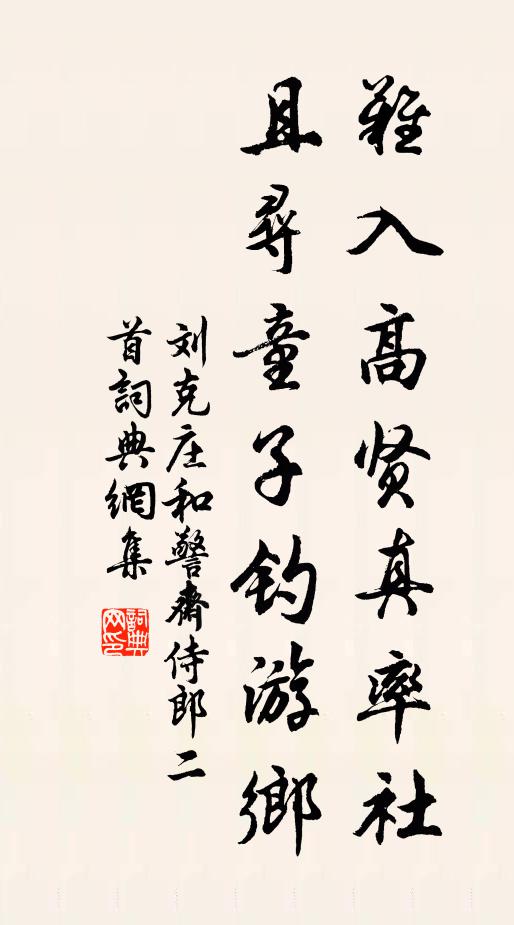 難入高贤真率社
且尋童子钓游鄉
刘克庄和警齋侍郎二
首詞典網集
詞典网印